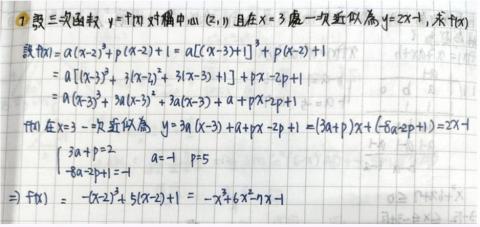 ① 設三次函數 y=f(x) 對稱中心 (2,1) 且在 x=3 處一次近似為 y=2x-1, 求 f(x)
設 f(x)=a(x-2)³+p(x-2)+1 = a[(x-3)+1]³+p(x-2)+1
= a[(x-3)³+3(x-3)²+3(x-3)+1]+px-2p+1
= a(x-3)³+3a(x-3)²+3a(x-3)+a+px-2p+1
f(x) 在 x=3 一次近似為 y=3a(x-3)+a+px-2p+1=(3a+p)x+(-8a-2p+1)=2x-1
{ 3a+p=2 a=-1 p=5
-8a-2p+1=-1
⇒ f(x) = -(x-2)³+5(x-2)+1 = -x³+6x²-7x-1